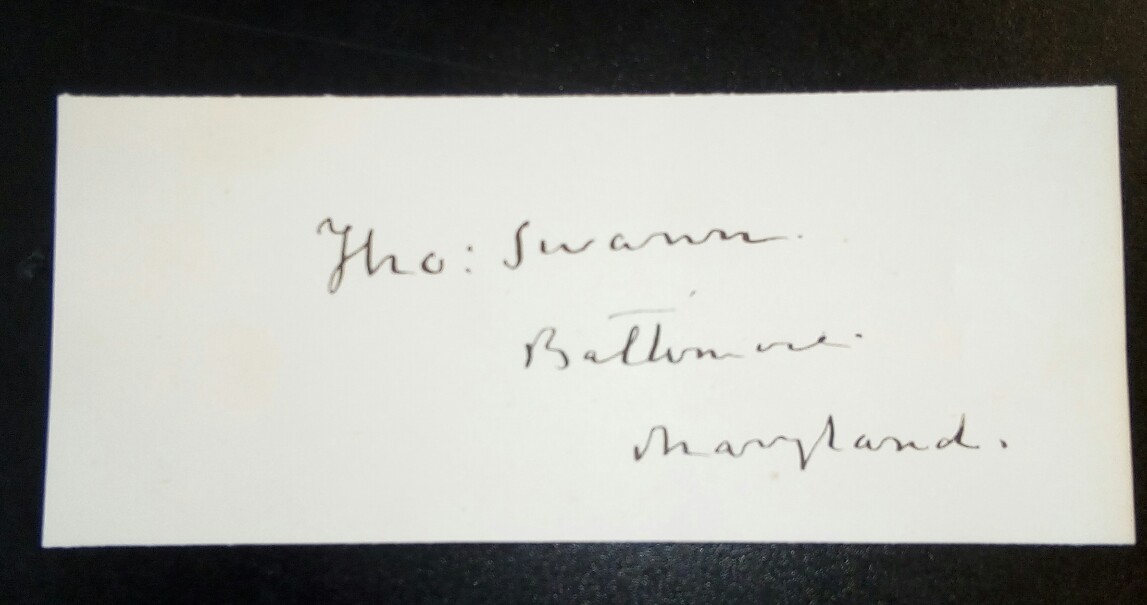 Tho: Swann.
Baltimore.
Maryland.